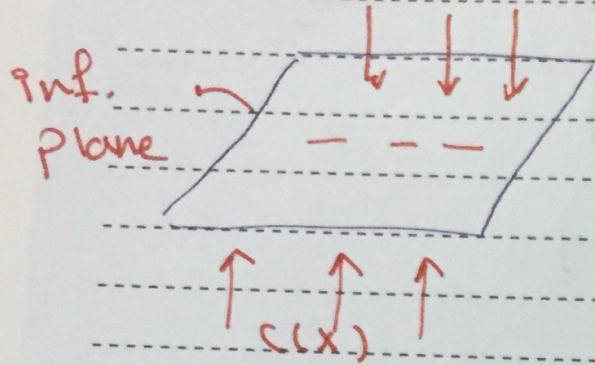 inf.
plane
— — —
C(X)